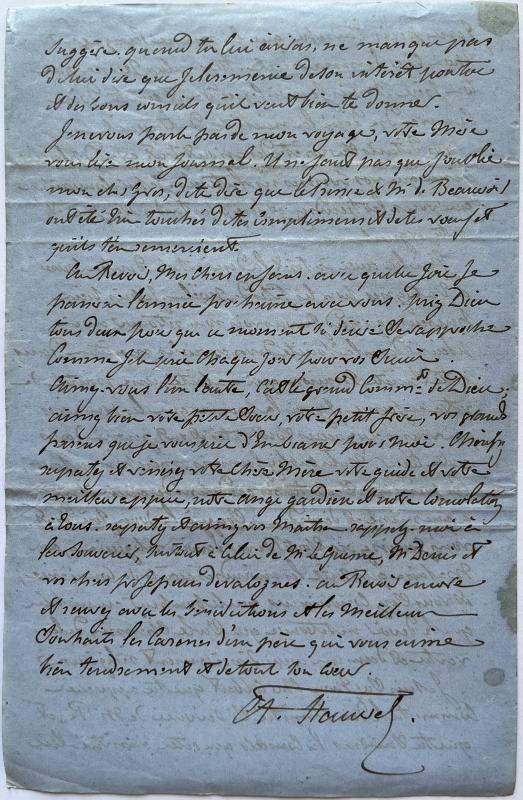 suggère. quand tu lui écriras, ne manque pas
de lui dire que je le remercie de son intérêt pour toi
et des bons conseils qu'il veut bien te donner.
Je ne vous parle pas de mon voyage, votre Mère
vous lira mon journal. Il ne faut pas que j'oublie
mon cher Gros, de te dire que le Prince & Mr. de Beauvoir
ont été bien touchés de tes complimens et de tes vœux et
qu'ils t'en remercient.
Au Revoir, Mes chers enfans. avec quelle joie je
passerai l'année prochaine avec vous. priez Dieu
tous deux pour que ce moment si désiré se rapproche
comme je le prie chaque jour pour vos
aimez-vous l'un l'autre, c'est le grand Commt. de Dieu,
aimez bien votre petite Sœur, votre petit frère, vos grands
parens que je vous prie d'Embrasser pour moi. Chérissez
respectez et vénérez votre Chère Mère votre guide et votre
meilleur appui, notre ange gardien et notre Consolation
à tous. respectez et aimez vos Maîtres. rappelez-moi à
leur souvenir, surtout à celui de Mr. Le Guerne, Mr. Denis et
vos chers professeurs de valognes. au Revoir encore
et recevez avec les bénédictions et les Meilleurs
Souhaits les Caresses d'un père qui vous aime
bien tendrement et de tout son cœur
A. Fauvel.